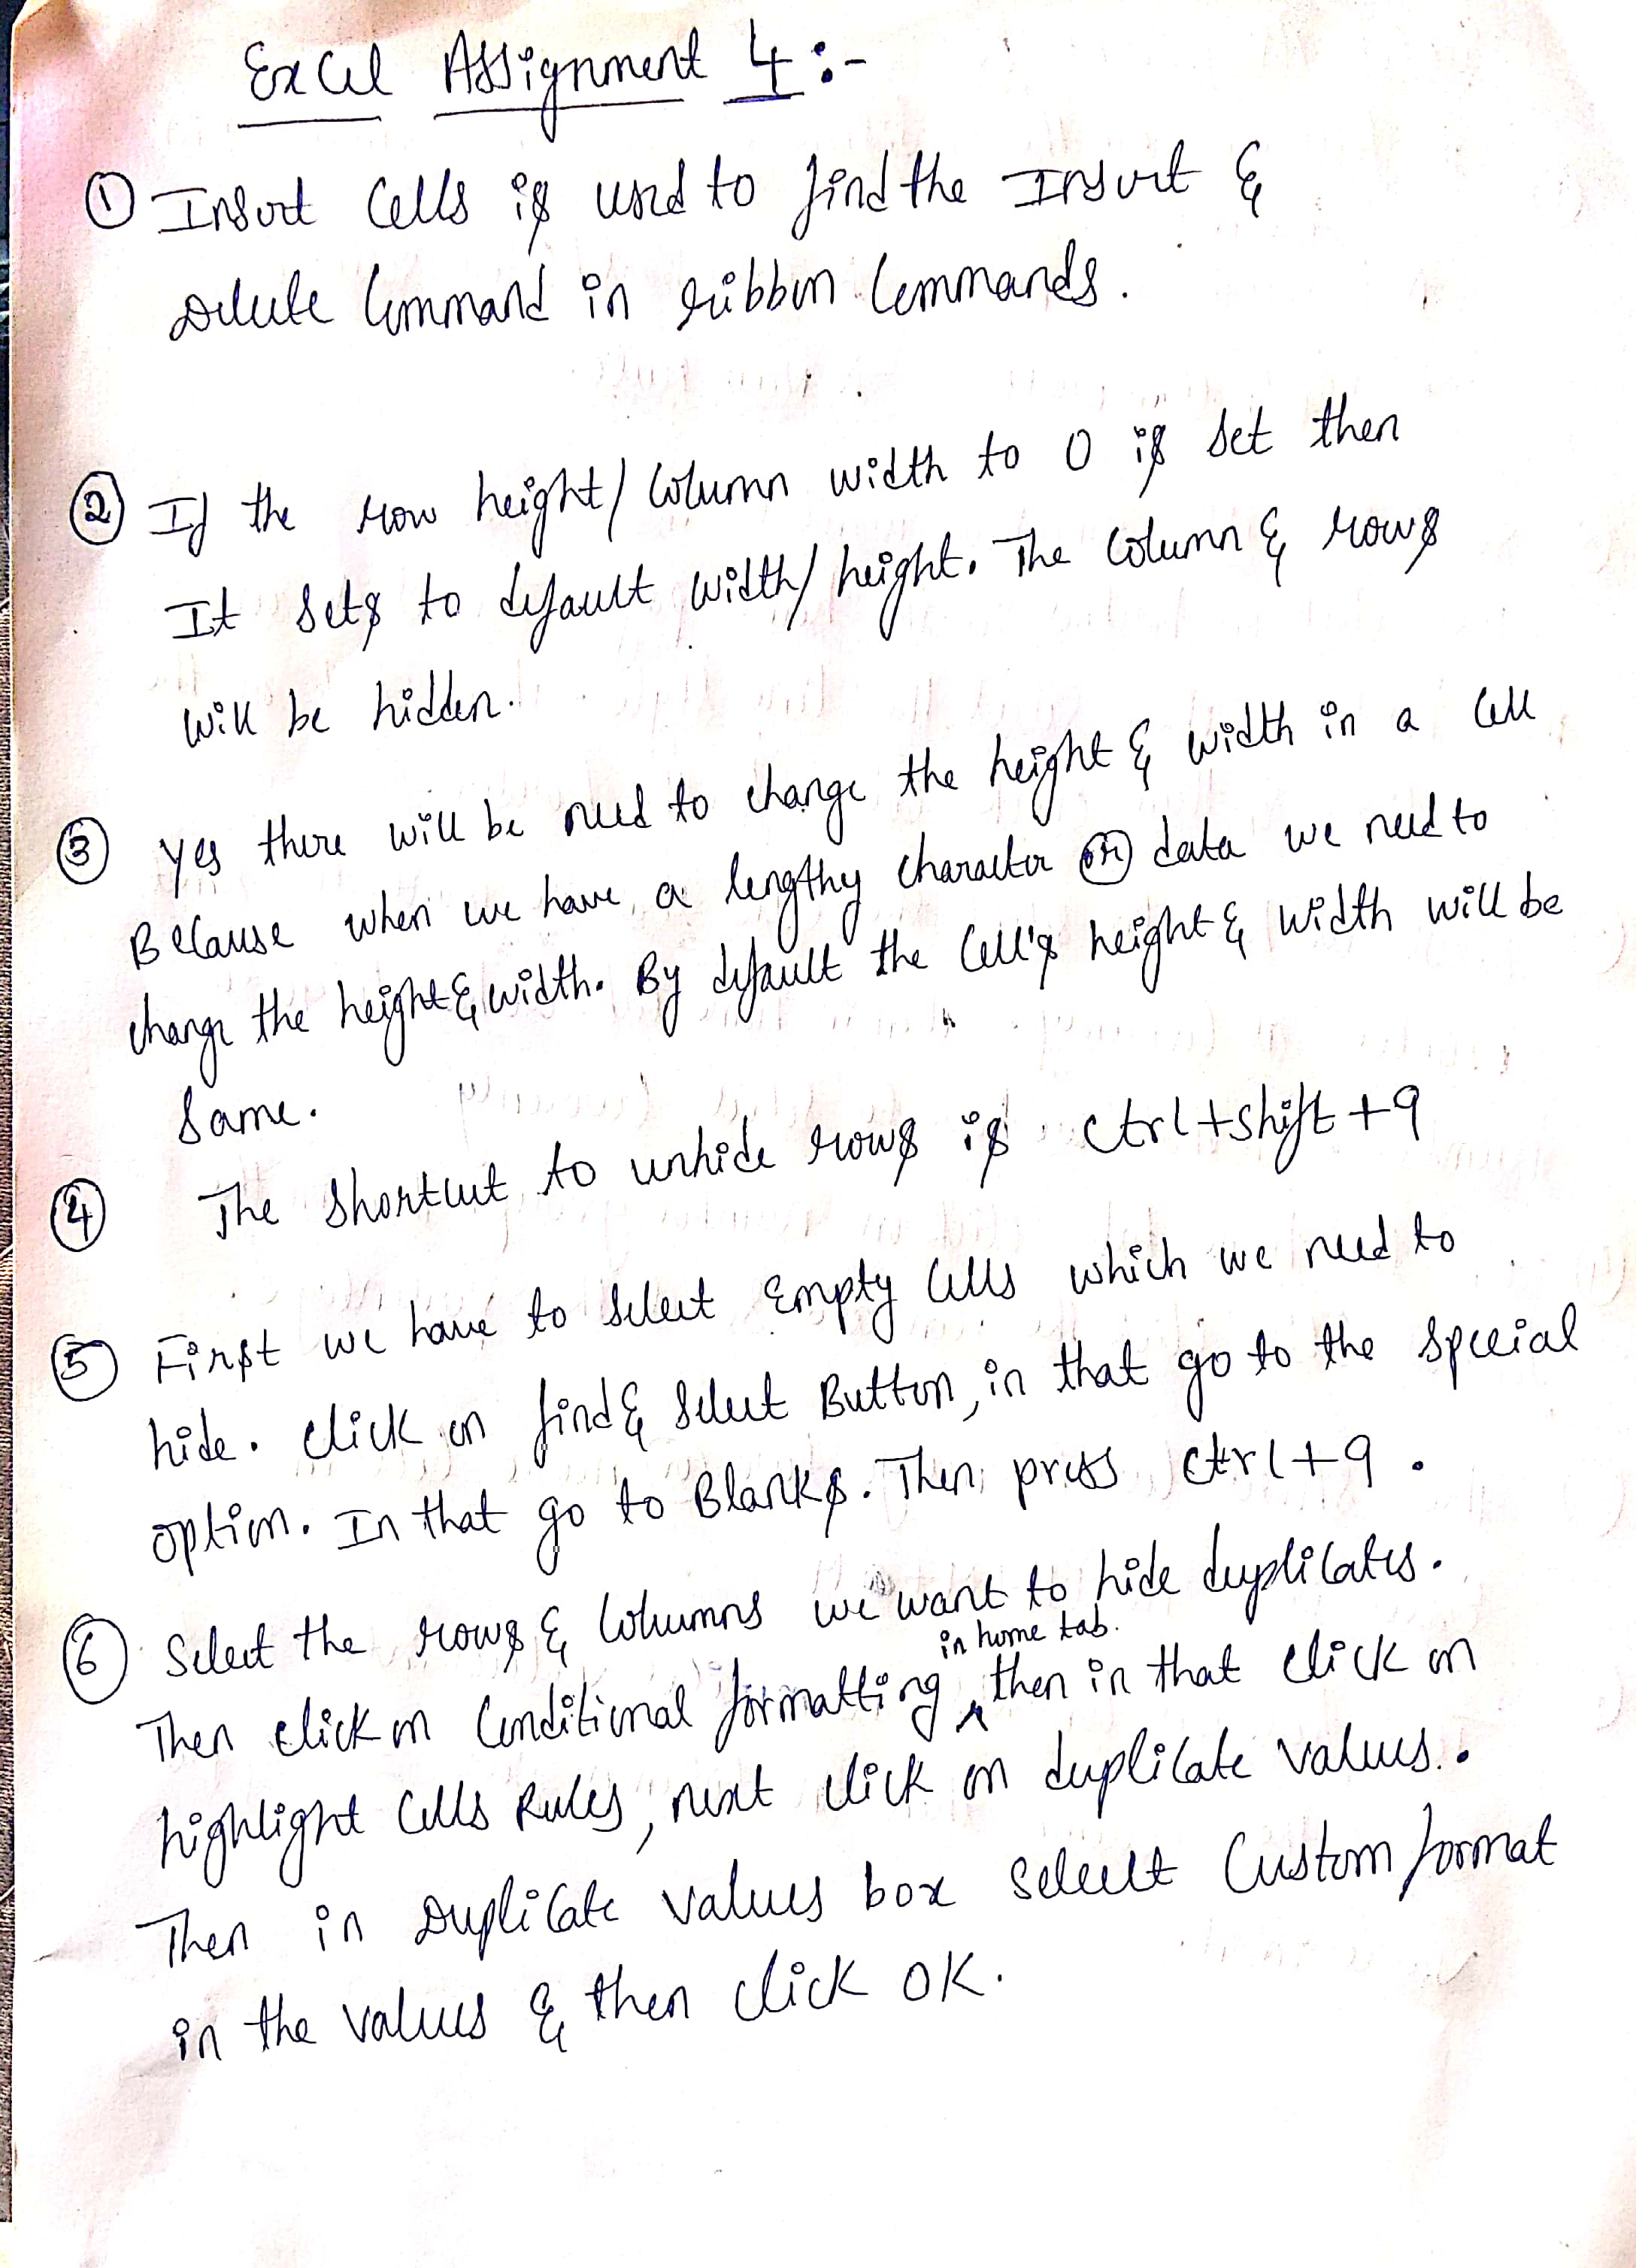 Excel Assignment 4 :-
① Insert Cells is used to find the Insert &
Delete Command in ribbon Commands.
② If the row height/column width to 0 is set then
It sets to default width/height. The column & rows
will be hidden.
③ yes there will be need to change the height & width in a cell
Because when we have a lengthy character or data we need to
change the height & width. By default the cell's height & width will be
same.
④ The shortcut to unhide rows is ctrl+shift+9
⑤ First we have to select Empty cells which we need to
hide. click on find & select Button, in that go to the special
option. In that go to Blanks. Then press ctrl+9.
⑥ Select the rows & columns we want to hide duplicates.
in home tab.
Then click on Conditional formatting ^ then in that click on
highlight Cells Rules, next click on duplicate values.
Then in Duplicate values box select Custom format
in the values & then click OK.